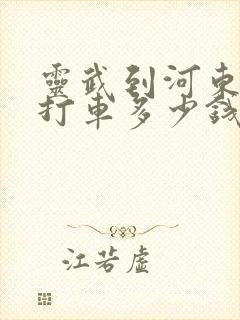 靈武到河東
打車多少錢
江若虛